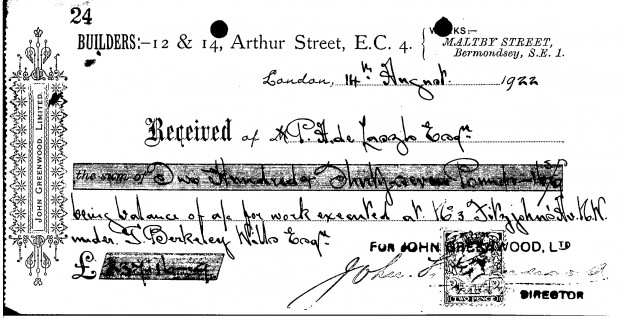 24
BUILDERS:–12 & 14, Arthur Street, E.C. 4.
WORKS:–
MALTBY STREET,
Bermondsey, S.E. 1.
London, 14th August 1922
JOHN GREENWOOD, LIMITED.
Received of P. A. de Laszlo Esqre
the sum of Two Hundred & Thirty seven Pounds
being balance of a/c for work executed at No 3 Fitzjohns Av. N.W.
under T. Berkeley Wills Esqre
FOR JOHN GREENWOOD, LTD
£
John
TWO PENCE
DIRECTOR